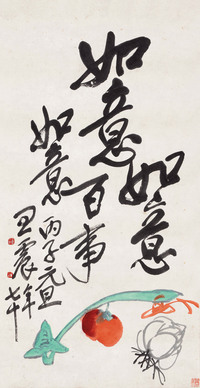 如意如意
百事
如意
丙子元旦
王震年七十